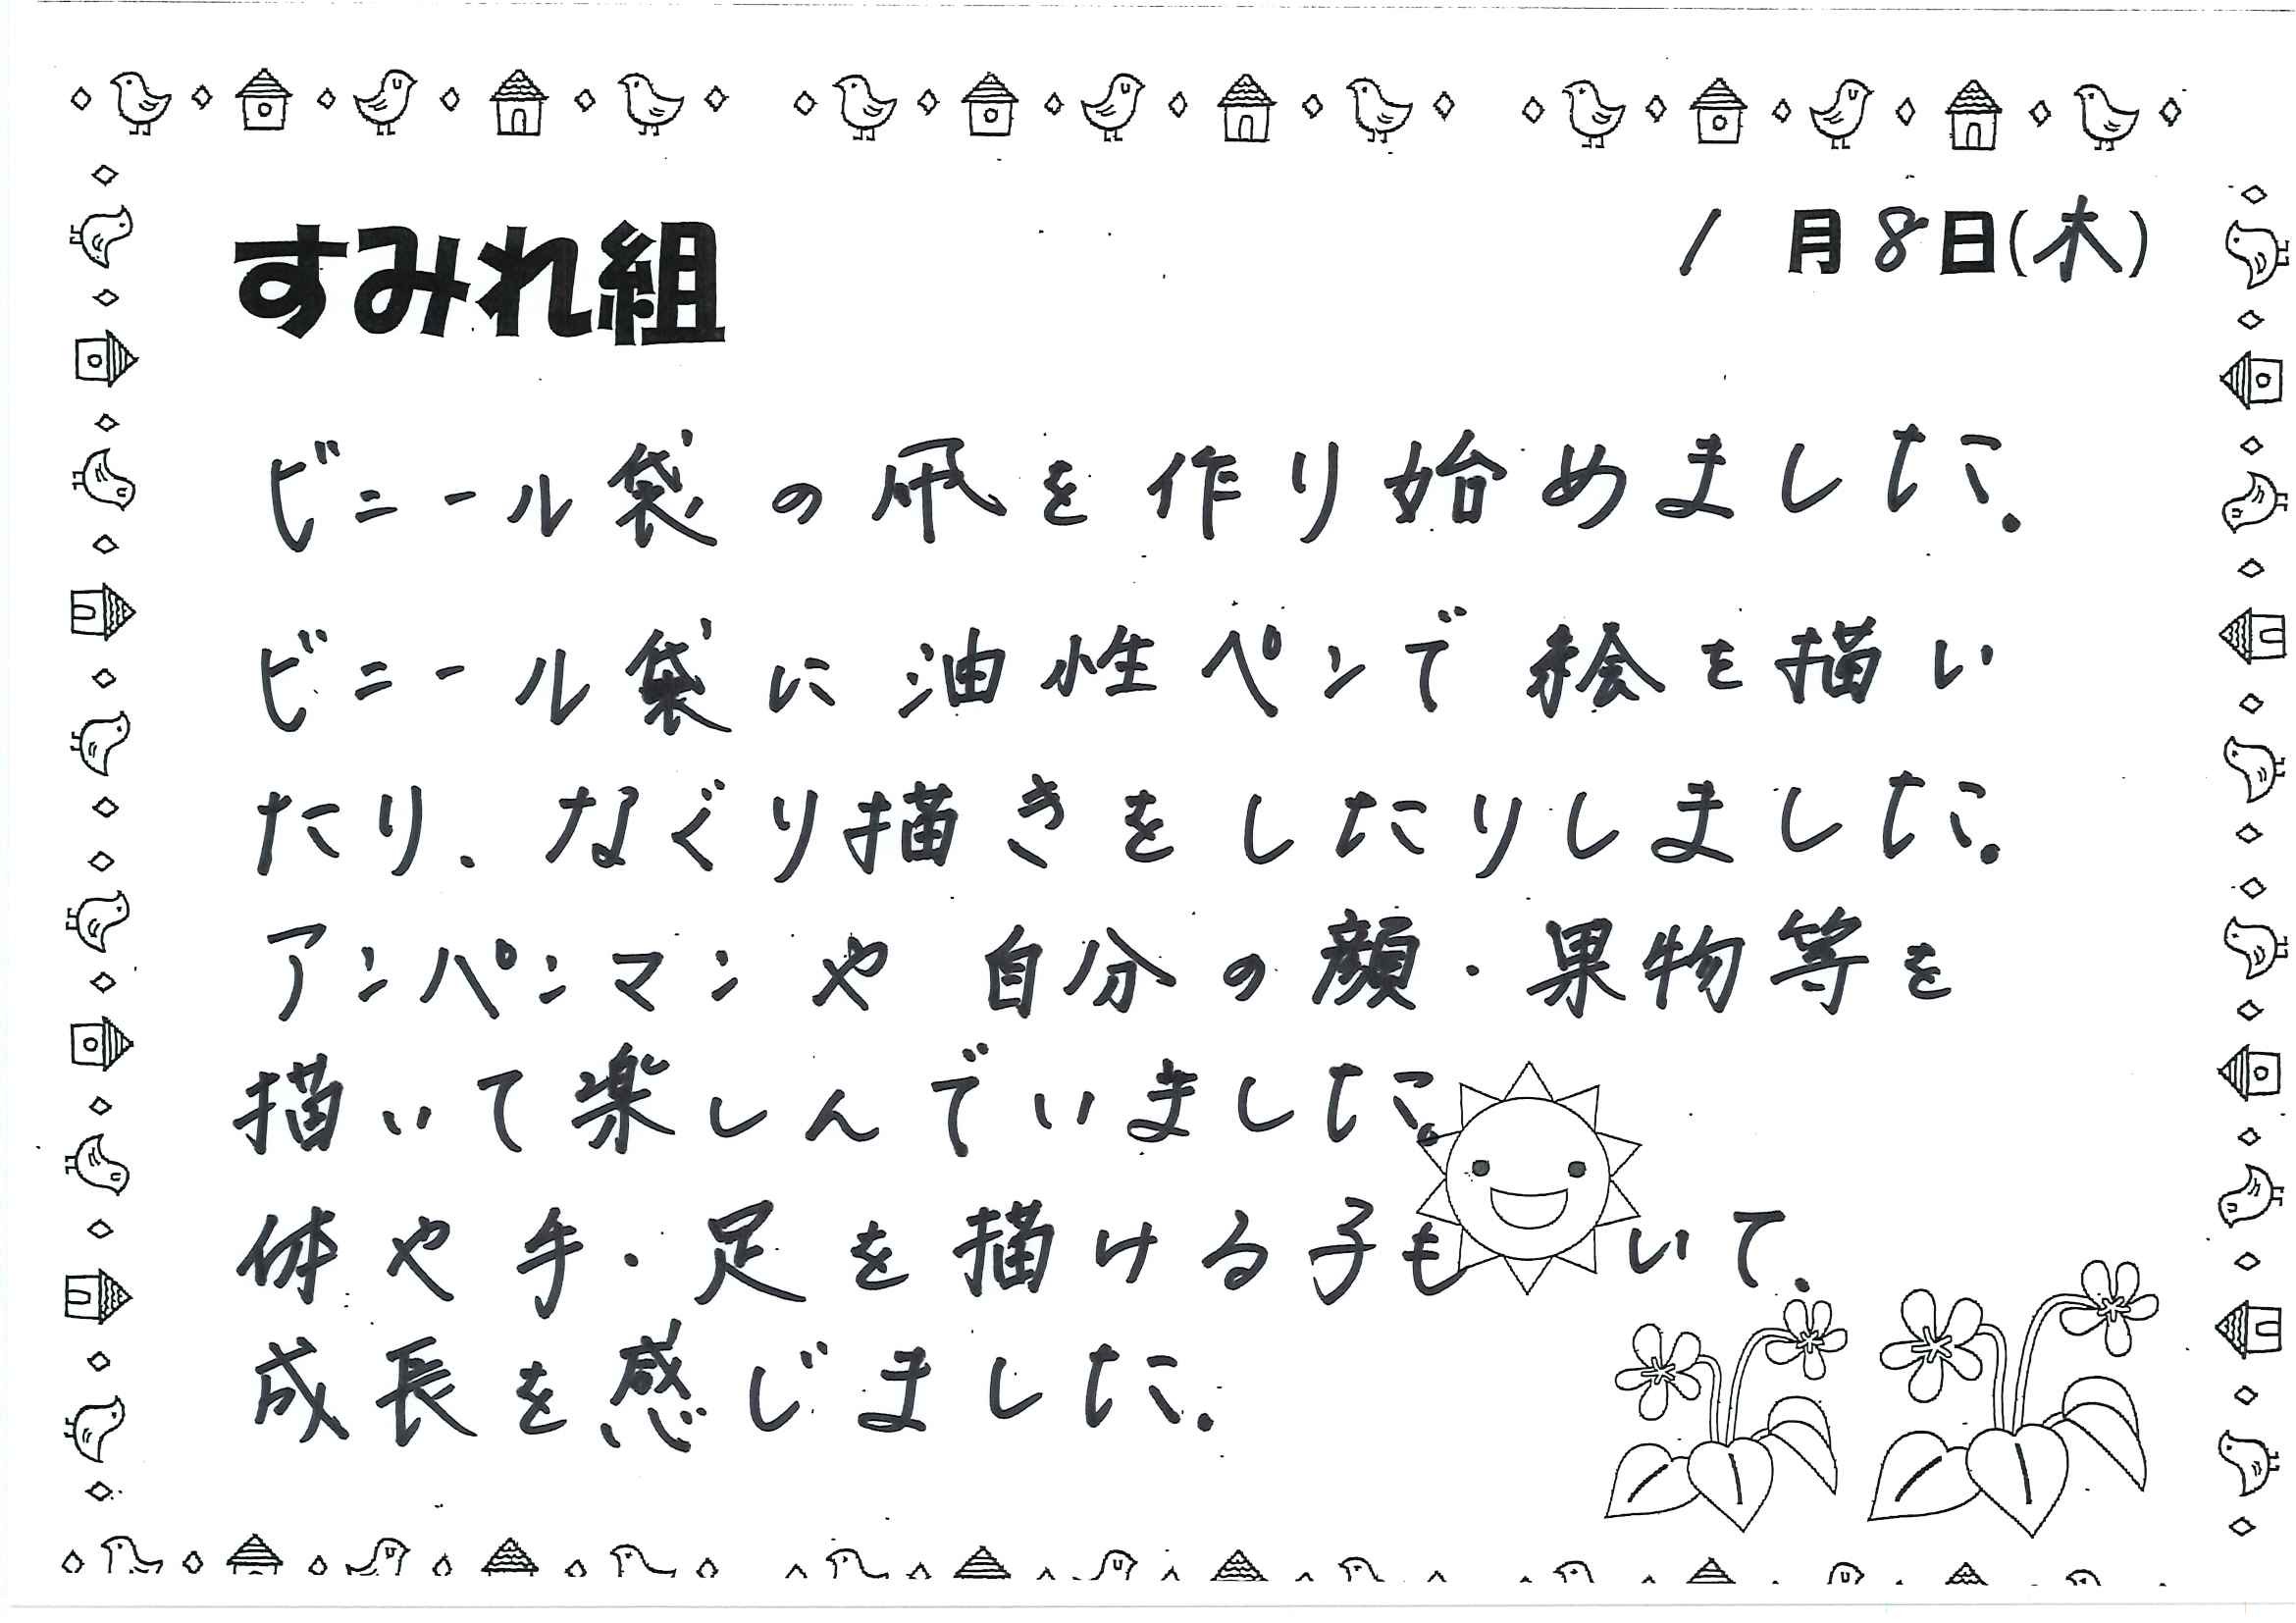 すみれ組
1月8日(木)
ビニール袋の凧を作り始めました。
ビニール袋に油性ペンで絵を描い
たり、なぐり描きをしたりしました。
アンパンマンや自分の顔・果物等を
描いて楽しんでいました。
体や手・足を描ける子もいて、
成長を感じました。